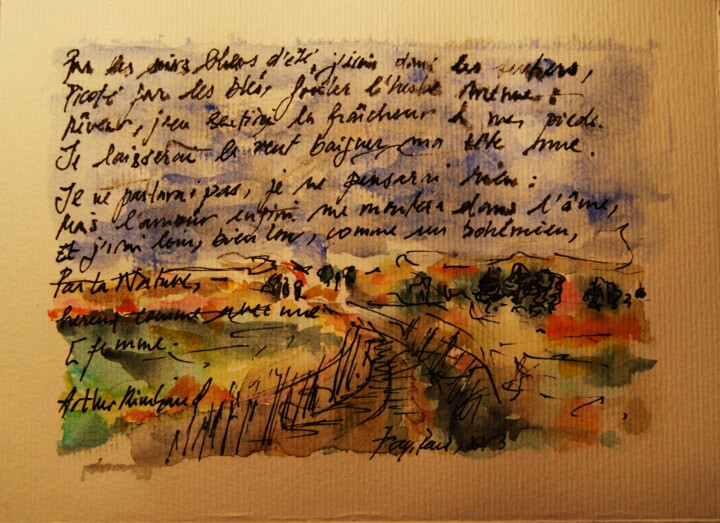 Par les soirs bleus d'été, j'irai dans les sentiers,
Picoté par les blés, fouler l'herbe menue :
Rêveur, j'en sentirai la fraîcheur à mes pieds.
Je laisserai le vent baigner ma tête nue.
Je ne parlerai pas, je ne penserai rien :
Mais l'amour infini me montera dans l'âme,
Et j'irai loin, bien loin, comme un bohémien,
Par la Nature,
heureux comme avec une
[ femme.
Arthur Rimbaud